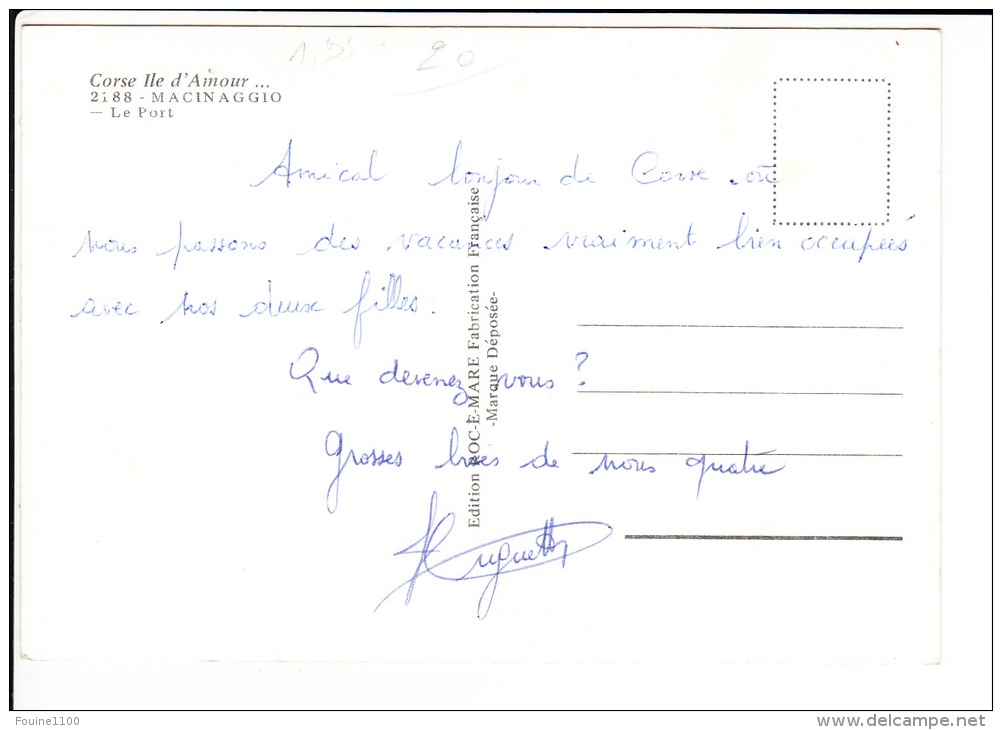 1,95 20
Corse Ile d'Amour ...
2188 - MACINAGGIO
— Le Port
Amical bonjour de Corse où
nous passons des vacances vraiment bien occupées
avec nos deux filles.
Que devenez vous ?
Grosses bises de nous quatre
Huguette
Edition ROC-E-MARE Fabrication Française
-Marque Déposée-
Fouine1100
delcampe.net